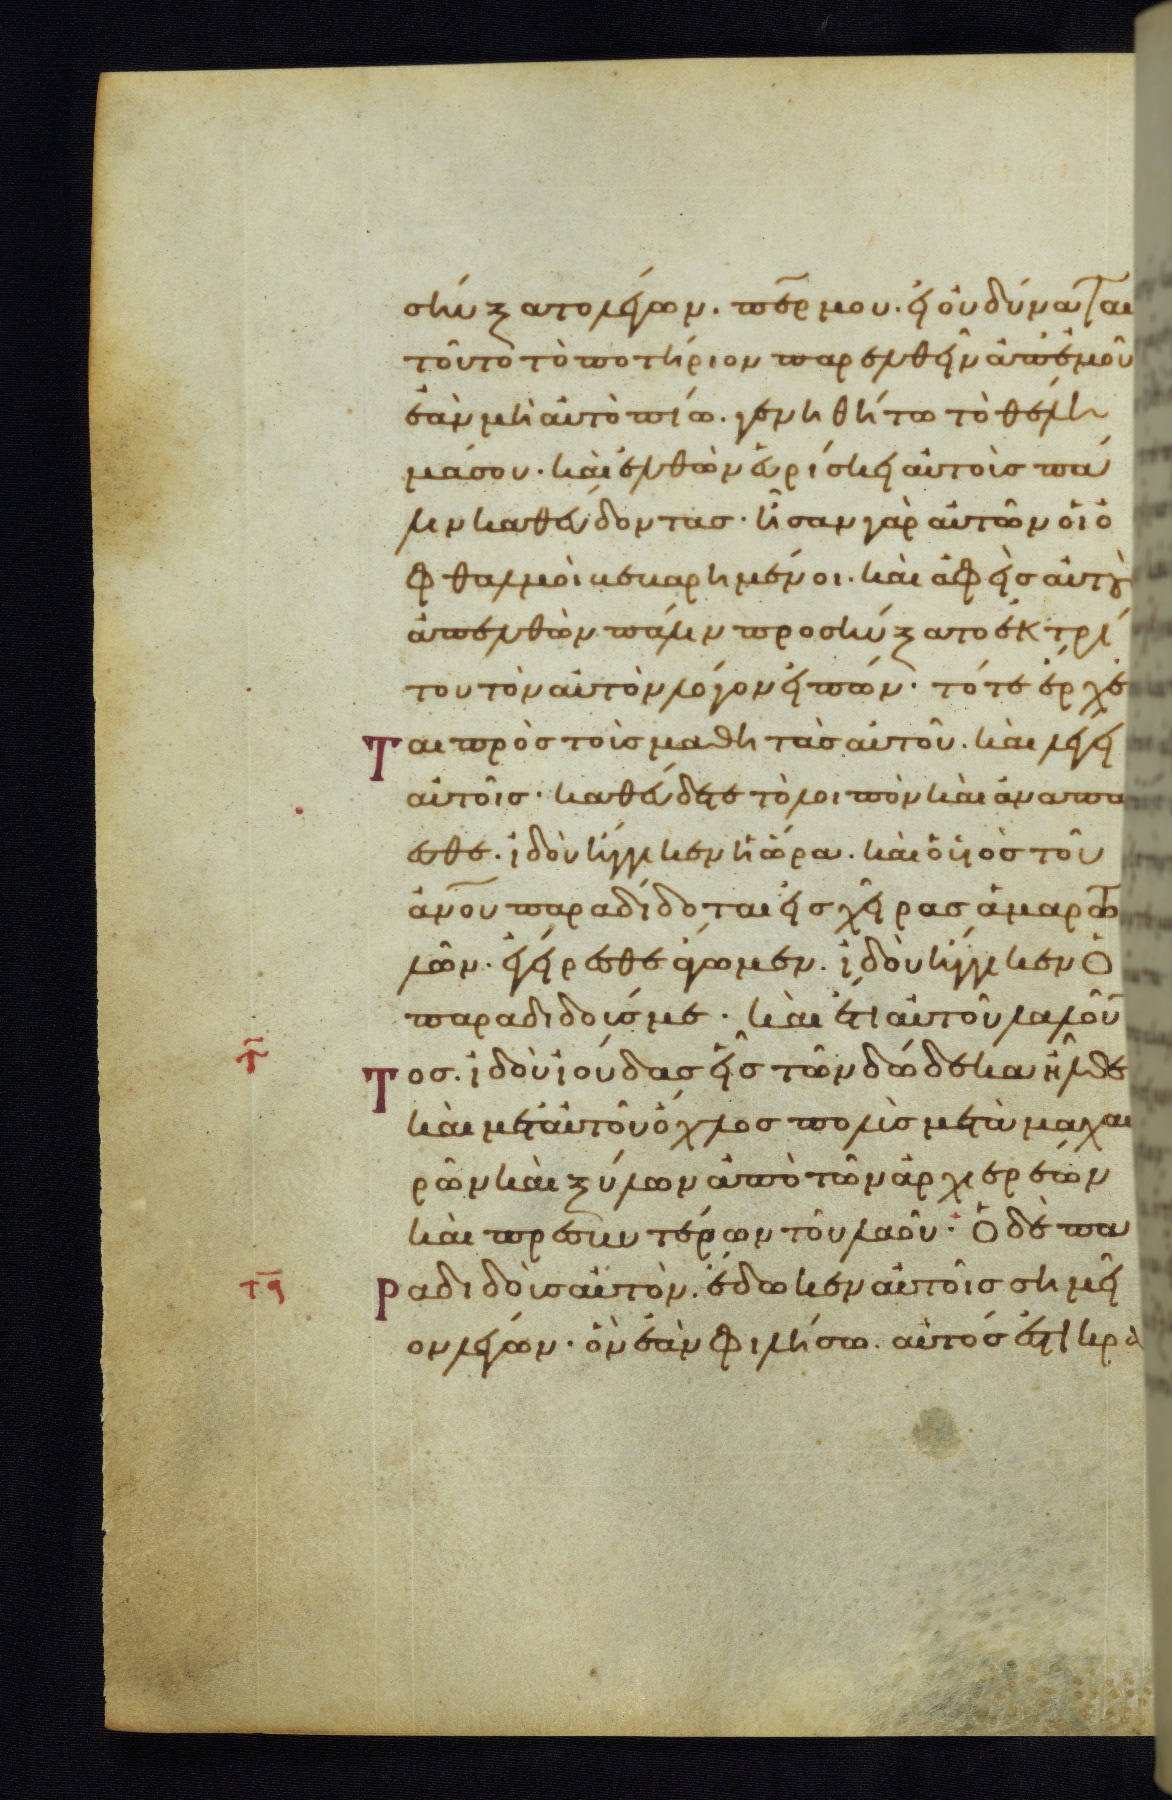 σηύξατο λέγων. πέρ μου. εἰ οὐ δύναται
τοῦτο τὸ ποτήριον παρελθεῖν ἀπ' ἐμοῦ
ἐὰν μὴ αὐτὸ πίω. γενηθήτω τὸ θέλη
μά σου. καὶ ἐλθὼν εὑρίσκει αὐτοὺς πά
λιν καθεύδοντας. ἦσαν γὰρ αὐτῶν οἱ ὀ
φθαλμοὶ βεβαρημένοι. καὶ ἀφεὶς αὐτοὺς
ἀπελθὼν πάλιν προσηύξατο ἐκ τρί
του τὸν αὐτὸν λόγον εἰπών. τότε ἔρχε
ται πρὸς τοὺς μαθητὰς αὐτοῦ. καὶ λέγει
αὐτοῖς. καθεύδετε τὸ λοιπὸν καὶ ἀναπαύ
εσθε. ἰδοὺ ἤγγικεν ἡ ὥρα. καὶ ὁ υἱὸς τοῦ
ἀνου παραδίδοται εἰς χεῖρας ἁμαρτω
λῶν. ἐγείρεσθε ἄγωμεν. ἰδοὺ ἤγγικεν ὁ
παραδιδούς με. καὶ ἔτι αὐτοῦ λαλοῦν
τος. ἰδοὺ ἰούδας εἷς τῶν δώδεκα ἦλθε
καὶ μετ' αὐτοῦ ὄχλος πολὺς μετὰ μαχαι
ρῶν καὶ ξύλων ἀπὸ τῶν ἀρχιερέων
καὶ πρεσβυτέρων τοῦ λαοῦ. Ὁ δὲ πα
ραδιδοὺς αὐτὸν. ἔδωκεν αὐτοῖς σημεῖ
ον λέγων. ὃν ἐὰν φιλήσω. αὐτός ἐστι κρα
τ
τα